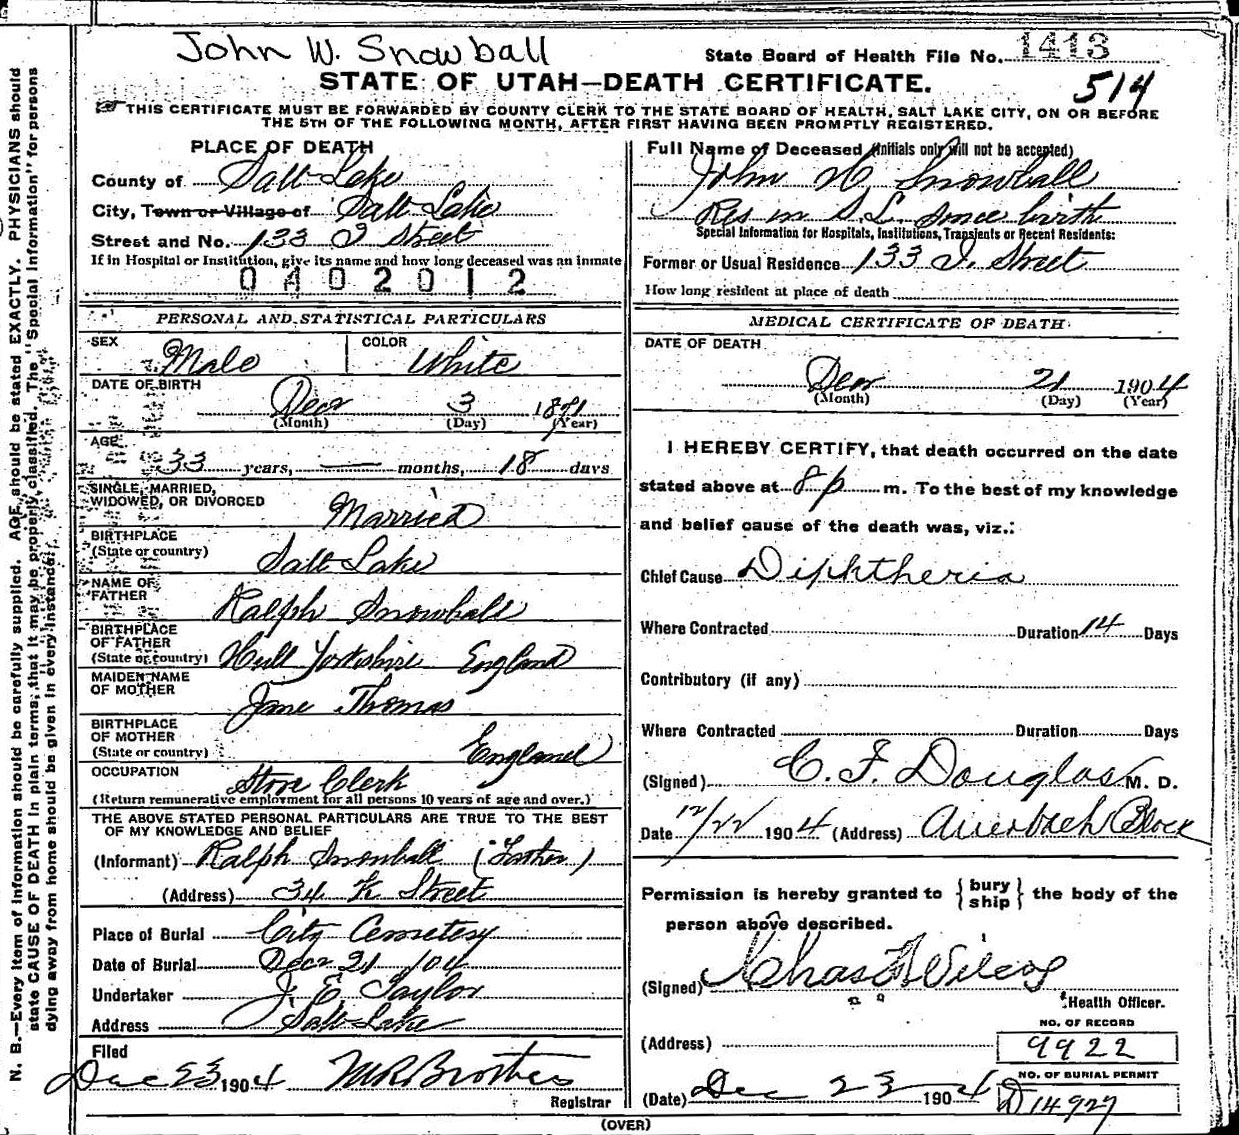 John W. Snowball
State Board of Health File No. 1413
STATE OF UTAH—DEATH CERTIFICATE.
514
THIS CERTIFICATE MUST BE FORWARDED BY COUNTY CLERK TO THE STATE BOARD OF HEALTH, SALT LAKE CITY, ON OR BEFORE
THE 5TH OF THE FOLLOWING MONTH, AFTER FIRST HAVING BEEN PROMPTLY REGISTERED.
PLACE OF DEATH
County of Salt Lake
City, Town or Village of Salt Lake
Street and No. 133 I Street
If in Hospital or Institution, give its name and how long deceased was an inmate
0402012
PERSONAL AND STATISTICAL PARTICULARS
SEX Male COLOR White
DATE OF BIRTH
Decr 3 1871
(Month) (Day) (Year)
AGE
33 years, — months, 18 days
SINGLE, MARRIED,
WIDOWED, OR DIVORCED Married
BIRTHPLACE
(State or country) Salt Lake
NAME OF
FATHER Ralph Snowball
BIRTHPLACE
OF FATHER
(State or country) Hull Yorkshire England
MAIDEN NAME
OF MOTHER Jane Thomas
BIRTHPLACE
OF MOTHER
(State or country) England
OCCUPATION Store Clerk
(Return remunerative employment for all persons 10 years of age and over.)
THE ABOVE STATED PERSONAL PARTICULARS ARE TRUE TO THE BEST
OF MY KNOWLEDGE AND BELIEF
(Informant) Ralph Snowball (Father)
(Address) 34 K Street
Place of Burial City Cemetery
Date of Burial Decr 21 /04
Undertaker J. E. Taylor
Address Salt Lake
Filed
Dec 23 1904 M R Brothers
Registrar
Full Name of Deceased (Initials only will not be accepted)
John W. Snowball
Res in S. L. Since birth
Special Information for Hospitals, Institutions, Transients or Recent Residents:
Former or Usual Residence 133 I. Street
How long resident at place of death
MEDICAL CERTIFICATE OF DEATH
DATE OF DEATH
Decr 21 1904
(Month) (Day) (Year)
I HEREBY CERTIFY, that death occurred on the date
stated above at 8 p m. To the best of my knowledge
and belief cause of the death was, viz.:
Chief Cause Diphtheria
Where Contracted Duration 14 Days
Contributory (if any)
Where Contracted Duration Days
(Signed) C. F. Douglas M. D.
Date 12/22 1904 (Address) Auerbach Block
Permission is hereby granted to {bury
ship} the body of the
person above described.
(Signed) Chas F Wilcox
Health Officer.
(Address)
NO. OF RECORD
9922
NO. OF BURIAL PERMIT
(Date) Dec 23 1904 D 14927
(OVER)
N. B.—Every item of information should be carefully supplied. AGE should be stated EXACTLY. PHYSICIANS should
state CAUSE OF DEATH in plain terms, that it may be properly classified. The "Special Information" for persons
dying away from home should be given in every instance.